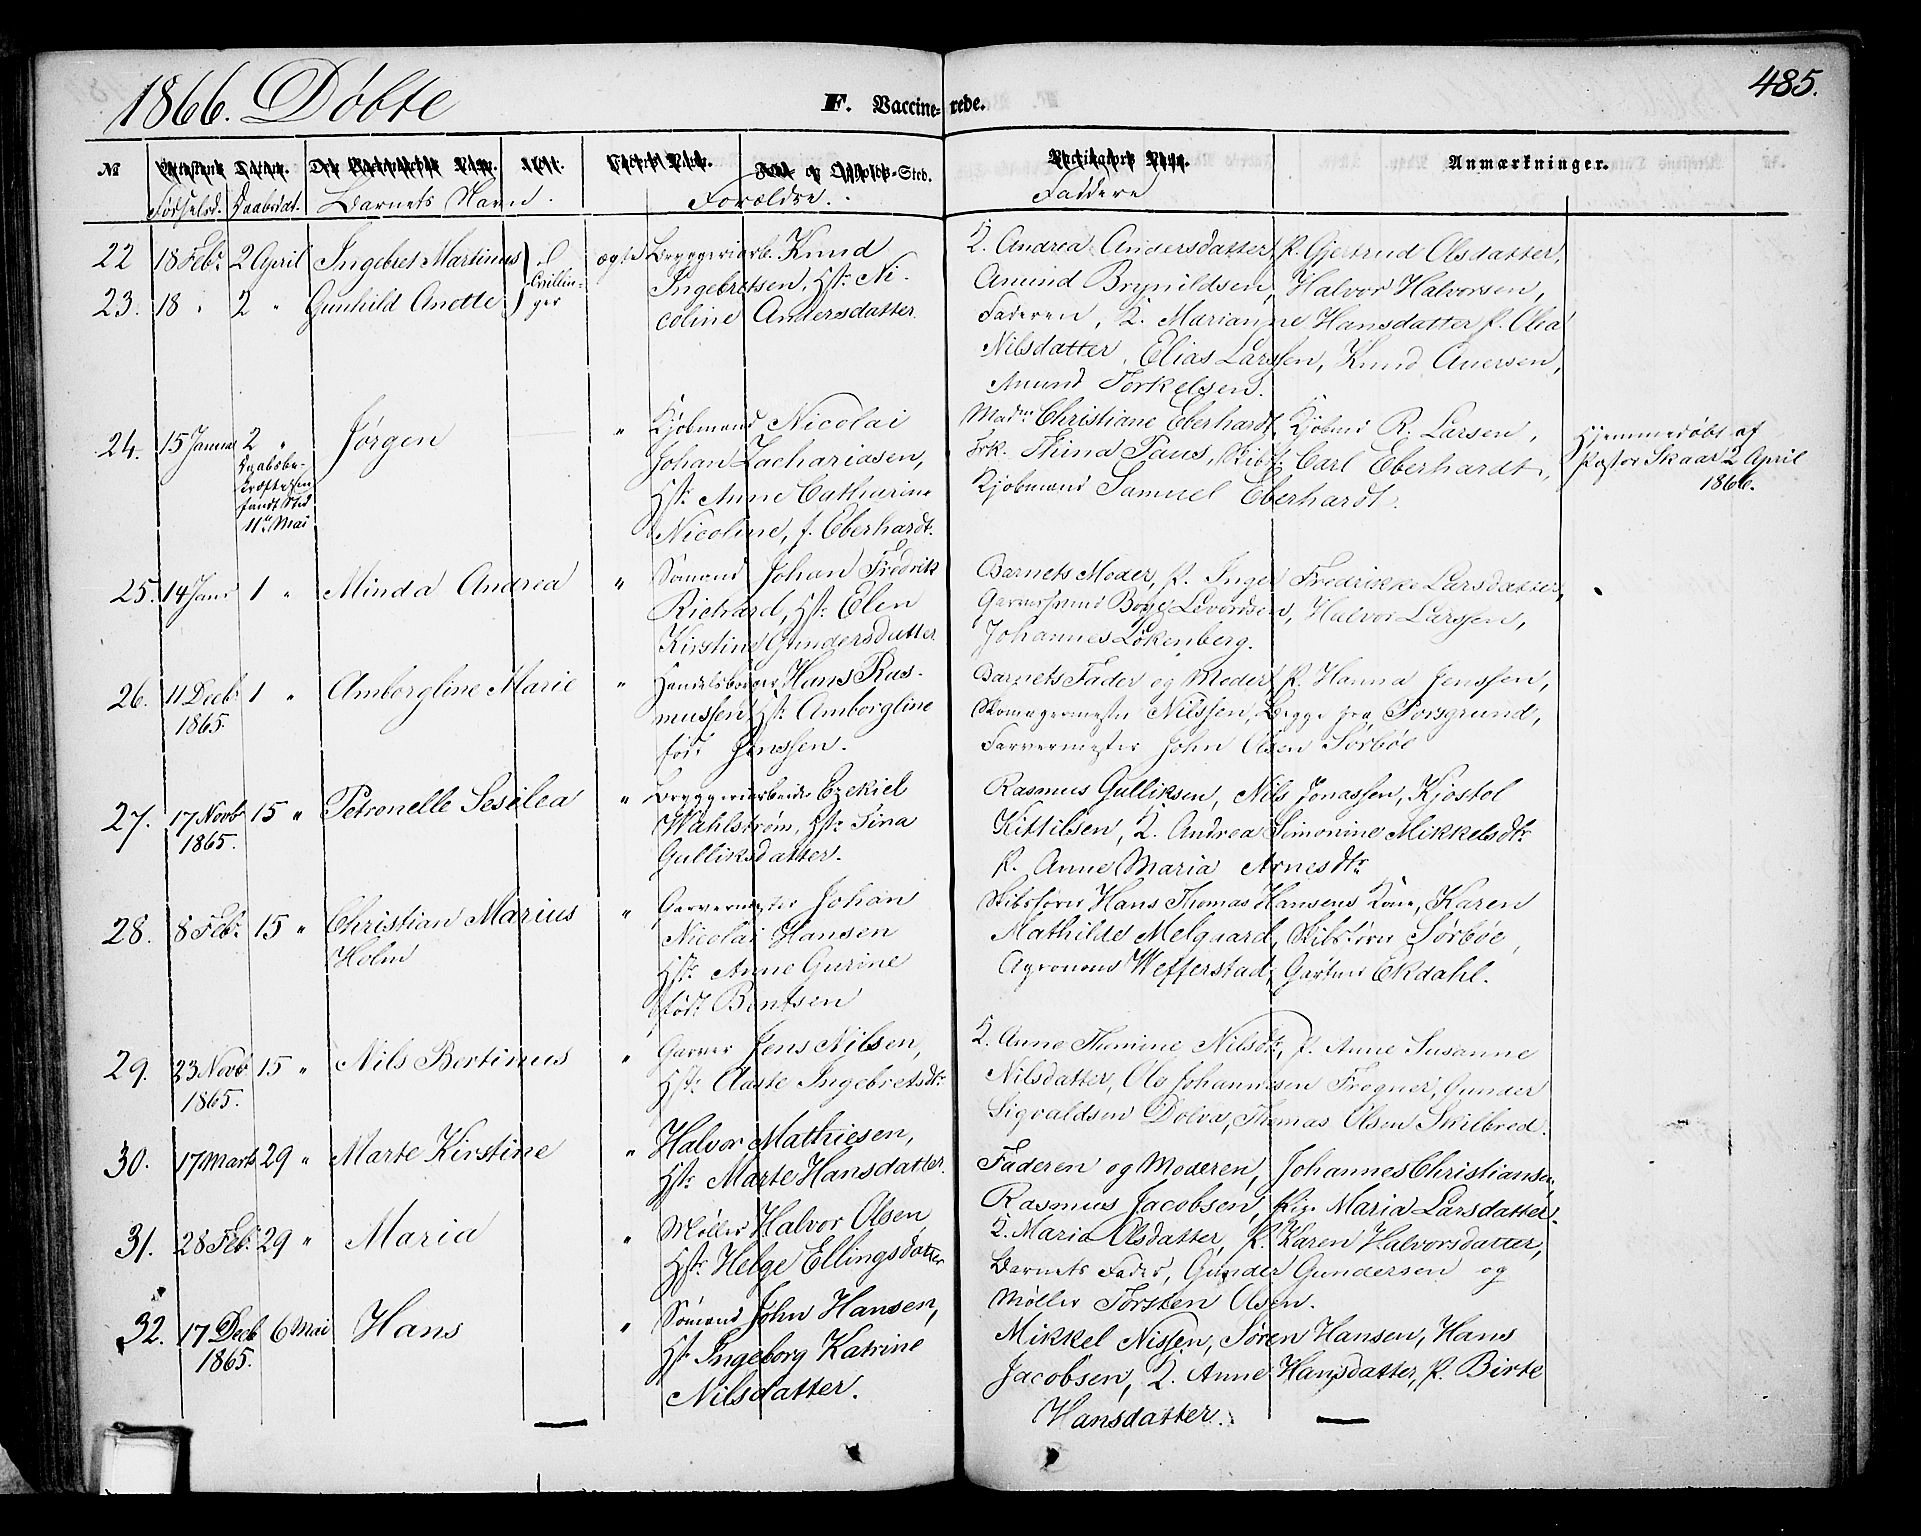 1866. Döbte
F. Vaccinerede.
485.
No
Fødselsd. Daabsdat. Barnets Navn. Forældre. Faddere Anmærkninger.
22 18 Febr. 2 April Ingebret Martinus } Tvillinger ægte Bryggeriarb. Knud
Ingebretsen, Hstr. Ni-
23. 18 " 2 " Gunhild Anette
coline Andersdatter
K. Andrea Andersdatter, P. Gjertrud Olsdatter,
Amund Brynildsen, Halvor Halvorsen,
Faderen, K. Marianne Hansdatter P. Olea
Nilsdatter, Elias Larssen, Knud Aversen,
Amund Torkelsen.
24. 15 Januar 2 " Jørgen " Kjøbmand Nicolai
Daabsbe-
kræftelsen
fandt Sted
11te Mai
Johan Zachariasen,
Hstr. Anne Cathrine
Nicoline, f. Eberhardt.
Madm. Christiane Eberhardt, Kjøbmd R. Larsen,
Frk. Thina Paus, Skibsf. Carl Eberhardt,
Kjøbmand Samuel Eberhardt.
Hjemmedøbt af
Pastor Skaar 2 April
1866.
25. 14 Janr 1 " Minda Andrea " Sømand Johan Fredrik
Richard, Hstr. Elen
Kirstine Gundersdatter
Barnets Moder, P. Inger Fredrikke Larsdatter,
Garversvend Børge Levordsen, Halvor Larssen,
Johannes Løkenberg.
26. 11 Decbr 1 " Amborgline Marie " Handelsborger Hans Ras-
1865.
mussen Hstr. Amborgline
født Jenssen.
Barnets Fader og Moder, P. Hanna Jenssen,
Skomagermester Nilssen, begge fra Porsgrund,
Farvermester John Olsen Sørbøe
27. 17 Novb 15 " Petronelle Sesilea " Bryggeriarbeider Ezekiel
1865.
Wahlstrøm, Hstr. Sina
Gulliksdatter.
Rasmus Gulliksen, Nils Jonassen, Kjøstol
Kittilsen, K. Andrea Simonine Mikkelsdtr
P. Anne Maria Arnesdtr
28. 8 Febr. 15 " Christian Marius " Garvermester Johan
Holm
Nicolai Hansen
Hstr. Anne Gurine
født Bentsen
Skibsfører Hans Thomas Hansens Kone, Karen
Mathilde Melgaard, Skibsfører Sørbøe,
Agronom Wefferstad, Gartner Ekdahl.
29. 23 Novb 15 " Nils Bertinus " Garver Jens Nilsen,
1865.
Hstr. Aaste Ingebretsdtr
K. Anne Thomine Nilsdtr, P. Anne Susanne
Nilsdatter, Ole Johannesen Frogner, Gunder
Sigvaldsen Dolva, Thomas Olsen Skilbred.
30. 17 Marts 29 " Marte Kirstine " Halvor Mathiesen,
Hstr. Marte Hansdatter
Faderen og Moderen, Johannes Christiansen,
Rasmus Jacobsen, Pige Maria Larsdatter.
31. 28 Febr. 29 " Maria " Møller Halvor Olsen
Hstr. Helge Ellingsdatter
K. Maria Olsdatter, P. Karen Halvorsdatter,
Barnets Fader, Gunder Gundersen og
Møller Torsten Olsen.
32. 17 Decb 6 Mai Hans " Sømand John Hansen,
1865.
Hstr. Ingeborg Katrine
Nilsdatter.
Mikkel Nissen, Søren Hansen, Hans
Jacobsen, K. Anne Hansdatter, P. Birte
Hansdatter.